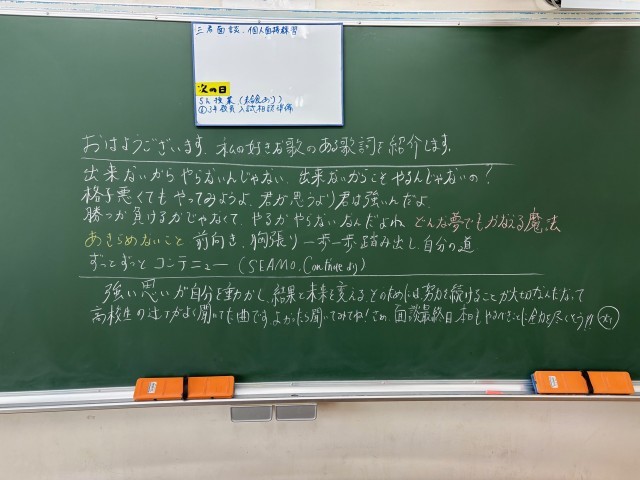 三者面談、個人面接練習
次の日
5h 授業(給食あり)
おはようございます。私の好きな歌のある歌詞を紹介します。
出来ないから やらないんじゃない 出来ないからこそ やるんじゃないの?
格子悪くても やってみようよ 君が思うより君は強いんだよ
勝つか負けるかじゃなくて やるか やらない なんだよね どんな夢でもかなえる魔法
あきらめないこと 前向き 胸張り 一歩一歩踏み出し 自分の道
ずっとずっと コンテニュー (SEAMO. Continue より)
強い思いが自分を動かし、結果と未来を変える。そのためには努力を続けることが大切なんだなって
高校生の辻T がよく聞いてた曲です。よかったら聞いてみてね! さぁ、面談最終日 本日もやるべきことに全力を尽くそう!!